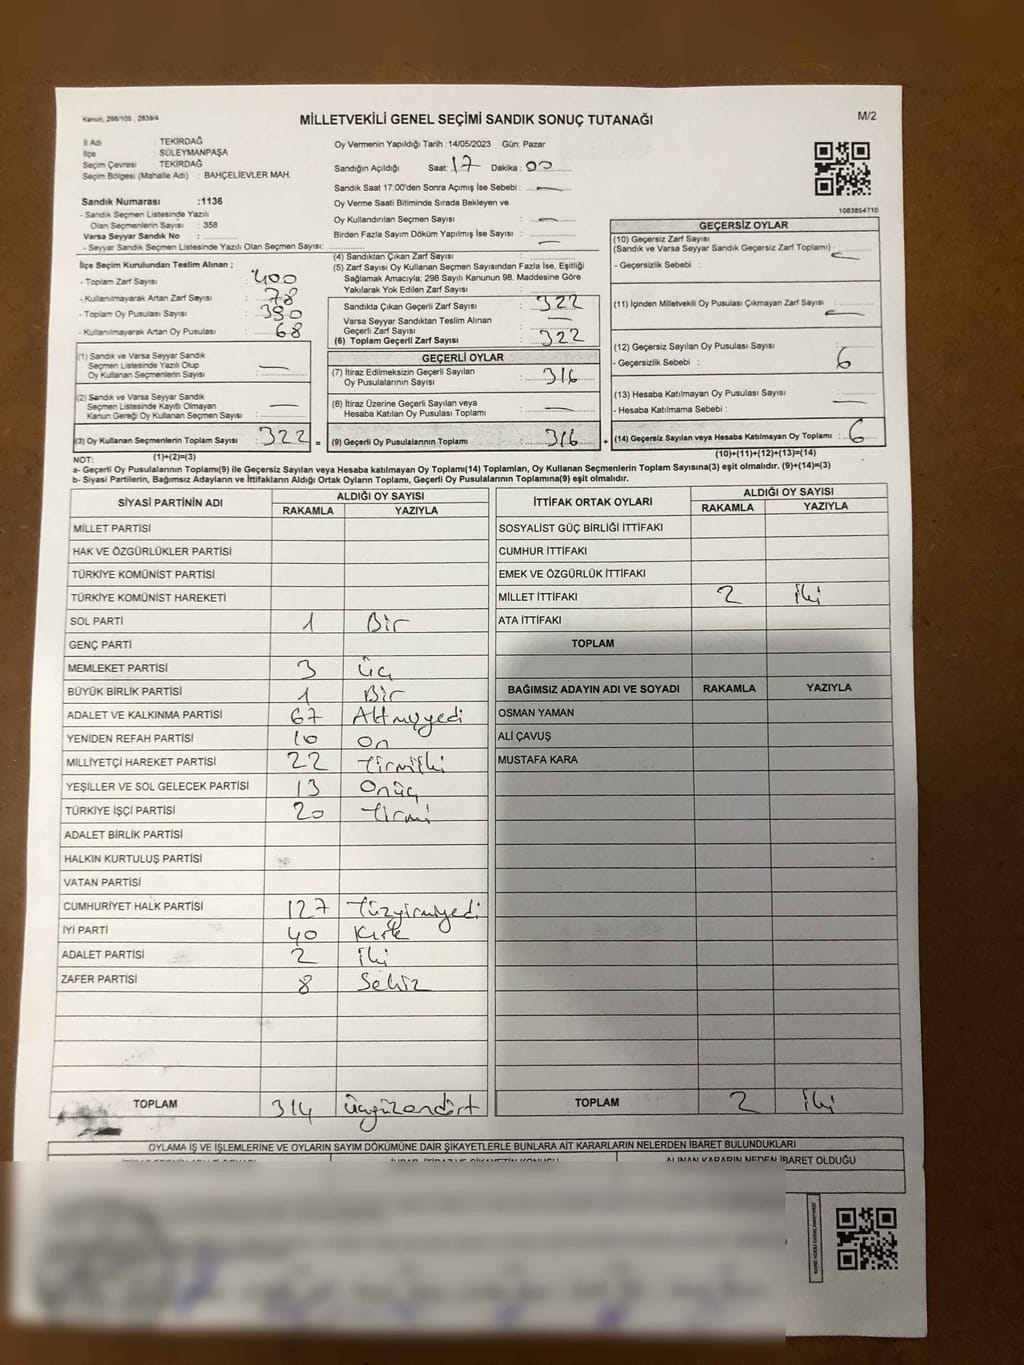 Kanun, 298/105 , 2839/4
MİLLETVEKİLİ GENEL SEÇİMİ SANDIK SONUÇ TUTANAĞI
M/2
İl Adı : TEKİRDAĞ
İlçe : SÜLEYMANPAŞA
Seçim Çevresi : TEKİRDAĞ
Seçim Bölgesi (Mahalle Adı) : BAHÇELİEVLER MAH.
Sandık Numarası :1136
- Sandık Seçmen Listesinde Yazılı
Olan Seçmenlerin Sayısı : 358
Varsa Seyyar Sandık No :
- Seyyar Sandık Seçmen Listesinde Yazılı Olan Seçmen Sayısı:
Oy Vermenin Yapıldığı Tarih : 14/05/2023 Gün: Pazar
Sandığın Açıldığı Saat: 17 Dakika: 00
Sandık Saat 17:00'den Sonra Açımış İse Sebebi : —
Oy Verme Saati Bitiminde Sırada Bekleyen ve
Oy Kullandırılan Seçmen Sayısı : —
Birden Fazla Sayım Döküm Yapılmış İse Sayısı : —
1083854710
İlçe Seçim Kurulundan Teslim Alınan ;
- Toplam Zarf Sayısı : 400
- Kullanılmayarak Artan Zarf Sayısı : 78
- Toplam Oy Pusulası Sayısı : 390
- Kullanılmayarak Artan Oy Pusulası : 68
(1) Sandık ve Varsa Seyyar Sandık
Seçmen Listesinde Yazılı Olup
Oy Kullanan Seçmenlerin Sayısı : —
(2) Sandık ve Varsa Seyyar Sandık
Seçmen Listesinde Kayıtlı Olmayan
Kanun Gereği Oy Kullanan Seçmen Sayısı : —
(3) Oy Kullanan Seçmenlerin Toplam Sayısı : 322 =
(1)+(2)=(3)
(4) Sandıktan Çıkan Zarf Sayısı :
(5) Zarf Sayısı Oy Kullanan Seçmen Sayısından Fazla İse, Eşitliği
Sağlamak Amacıyla; 298 Sayılı Kanunun 98. Maddesine Göre
Yakılarak Yok Edilen Zarf Sayısı :
Sandıkta Çıkan Geçerli Zarf Sayısı : 322
Varsa Seyyar Sandıktan Teslim Alınan
Geçerli Zarf Sayısı : —
(6) Toplam Geçerli Zarf Sayısı : 322
GEÇERLİ OYLAR
(7) İtiraz Edilmeksizin Geçerli Sayılan
Oy Pusulalarının Sayısı : 316
(8) İtiraz Üzerine Geçerli Sayılan veya
Hesaba Katılan Oy Pusulası Toplamı : —
(9) Geçerli Oy Pusulalarının Toplamı : 316 +
GEÇERSİZ OYLAR
(10) Geçersiz Zarf Sayısı
(Sandık ve Varsa Seyyar Sandık Geçersiz Zarf Toplamı) : —
- Geçersizlik Sebebi :
(11) İçinden Milletvekili Oy Pusulası Çıkmayan Zarf Sayısı : —
(12) Geçersiz Sayılan Oy Pusulası Sayısı : 6
- Geçersizlik Sebebi :
(13) Hesaba Katılmayan Oy Pusulası Sayısı : —
- Hesaba Katılmama Sebebi :
(14) Geçersiz Sayılan veya Hesaba Katılmayan Oy Pusulası Toplamı : 6
(10)+(11)+(12)+(13)=(14)
NOT:
a- Geçerli Oy Pusulalarının Toplamı(9) ile Geçersiz Sayılan veya Hesaba katılmayan Oy Toplamı(14) Toplamları, Oy Kullanan Seçmenlerin Toplam Sayısına(3) eşit olmalıdır. (9)+(14)=(3)
b- Siyasi Partilerin, Bağımsız Adayların ve İttifakların Aldığı Ortak Oyların Toplamı, Geçerli Oy Pusulalarının Toplamına(9) eşit olmalıdır.
SİYASİ PARTİNİN ADI ALDIĞI OY SAYISI
RAKAMLA YAZIYLA
MİLLET PARTİSİ
HAK VE ÖZGÜRLÜKLER PARTİSİ
TÜRKİYE KOMÜNİST PARTİSİ
TÜRKİYE KOMÜNİST HAREKETİ
SOL PARTİ 1 Bir
GENÇ PARTİ
MEMLEKET PARTİSİ 3 üç
BÜYÜK BİRLİK PARTİSİ 1 Bir
ADALET VE KALKINMA PARTİSİ 67 Altmışyedi
YENİDEN REFAH PARTİSİ 10 On
MİLLİYETÇİ HAREKET PARTİSİ 22 Yirmiiki
YEŞİLLER VE SOL GELECEK PARTİSİ 13 Onüç
TÜRKİYE İŞÇİ PARTİSİ 20 Yirmi
ADALET BİRLİK PARTİSİ
HALKIN KURTULUŞ PARTİSİ
VATAN PARTİSİ
CUMHURİYET HALK PARTİSİ 127 Yüzyirmiyedi
İYİ PARTİ 40 Kırk
ADALET PARTİSİ 2 iki
ZAFER PARTİSİ 8 Sekiz
TOPLAM 314 üçyüzondört
İTTİFAK ORTAK OYLARI ALDIĞI OY SAYISI
RAKAMLA YAZIYLA
SOSYALİST GÜÇ BİRLİĞİ İTTİFAKI
CUMHUR İTTİFAKI
EMEK VE ÖZGÜRLÜK İTTİFAKI
MİLLET İTTİFAKI 2 iki
ATA İTTİFAKI
TOPLAM
BAĞIMSIZ ADAYIN ADI VE SOYADI RAKAMLA YAZIYLA
OSMAN YAMAN
ALİ ÇAVUŞ
MUSTAFA KARA
TOPLAM 2 iki
OYLAMA İŞ VE İŞLEMLERİNE VE OYLARIN SAYIM DÖKÜMÜNE DAİR ŞİKAYETLERLE BUNLARA AİT KARARLARIN NELERDEN İBARET BULUNDUKLARI
ALINAN KARARIN NEDEN İBARET OLDUĞU